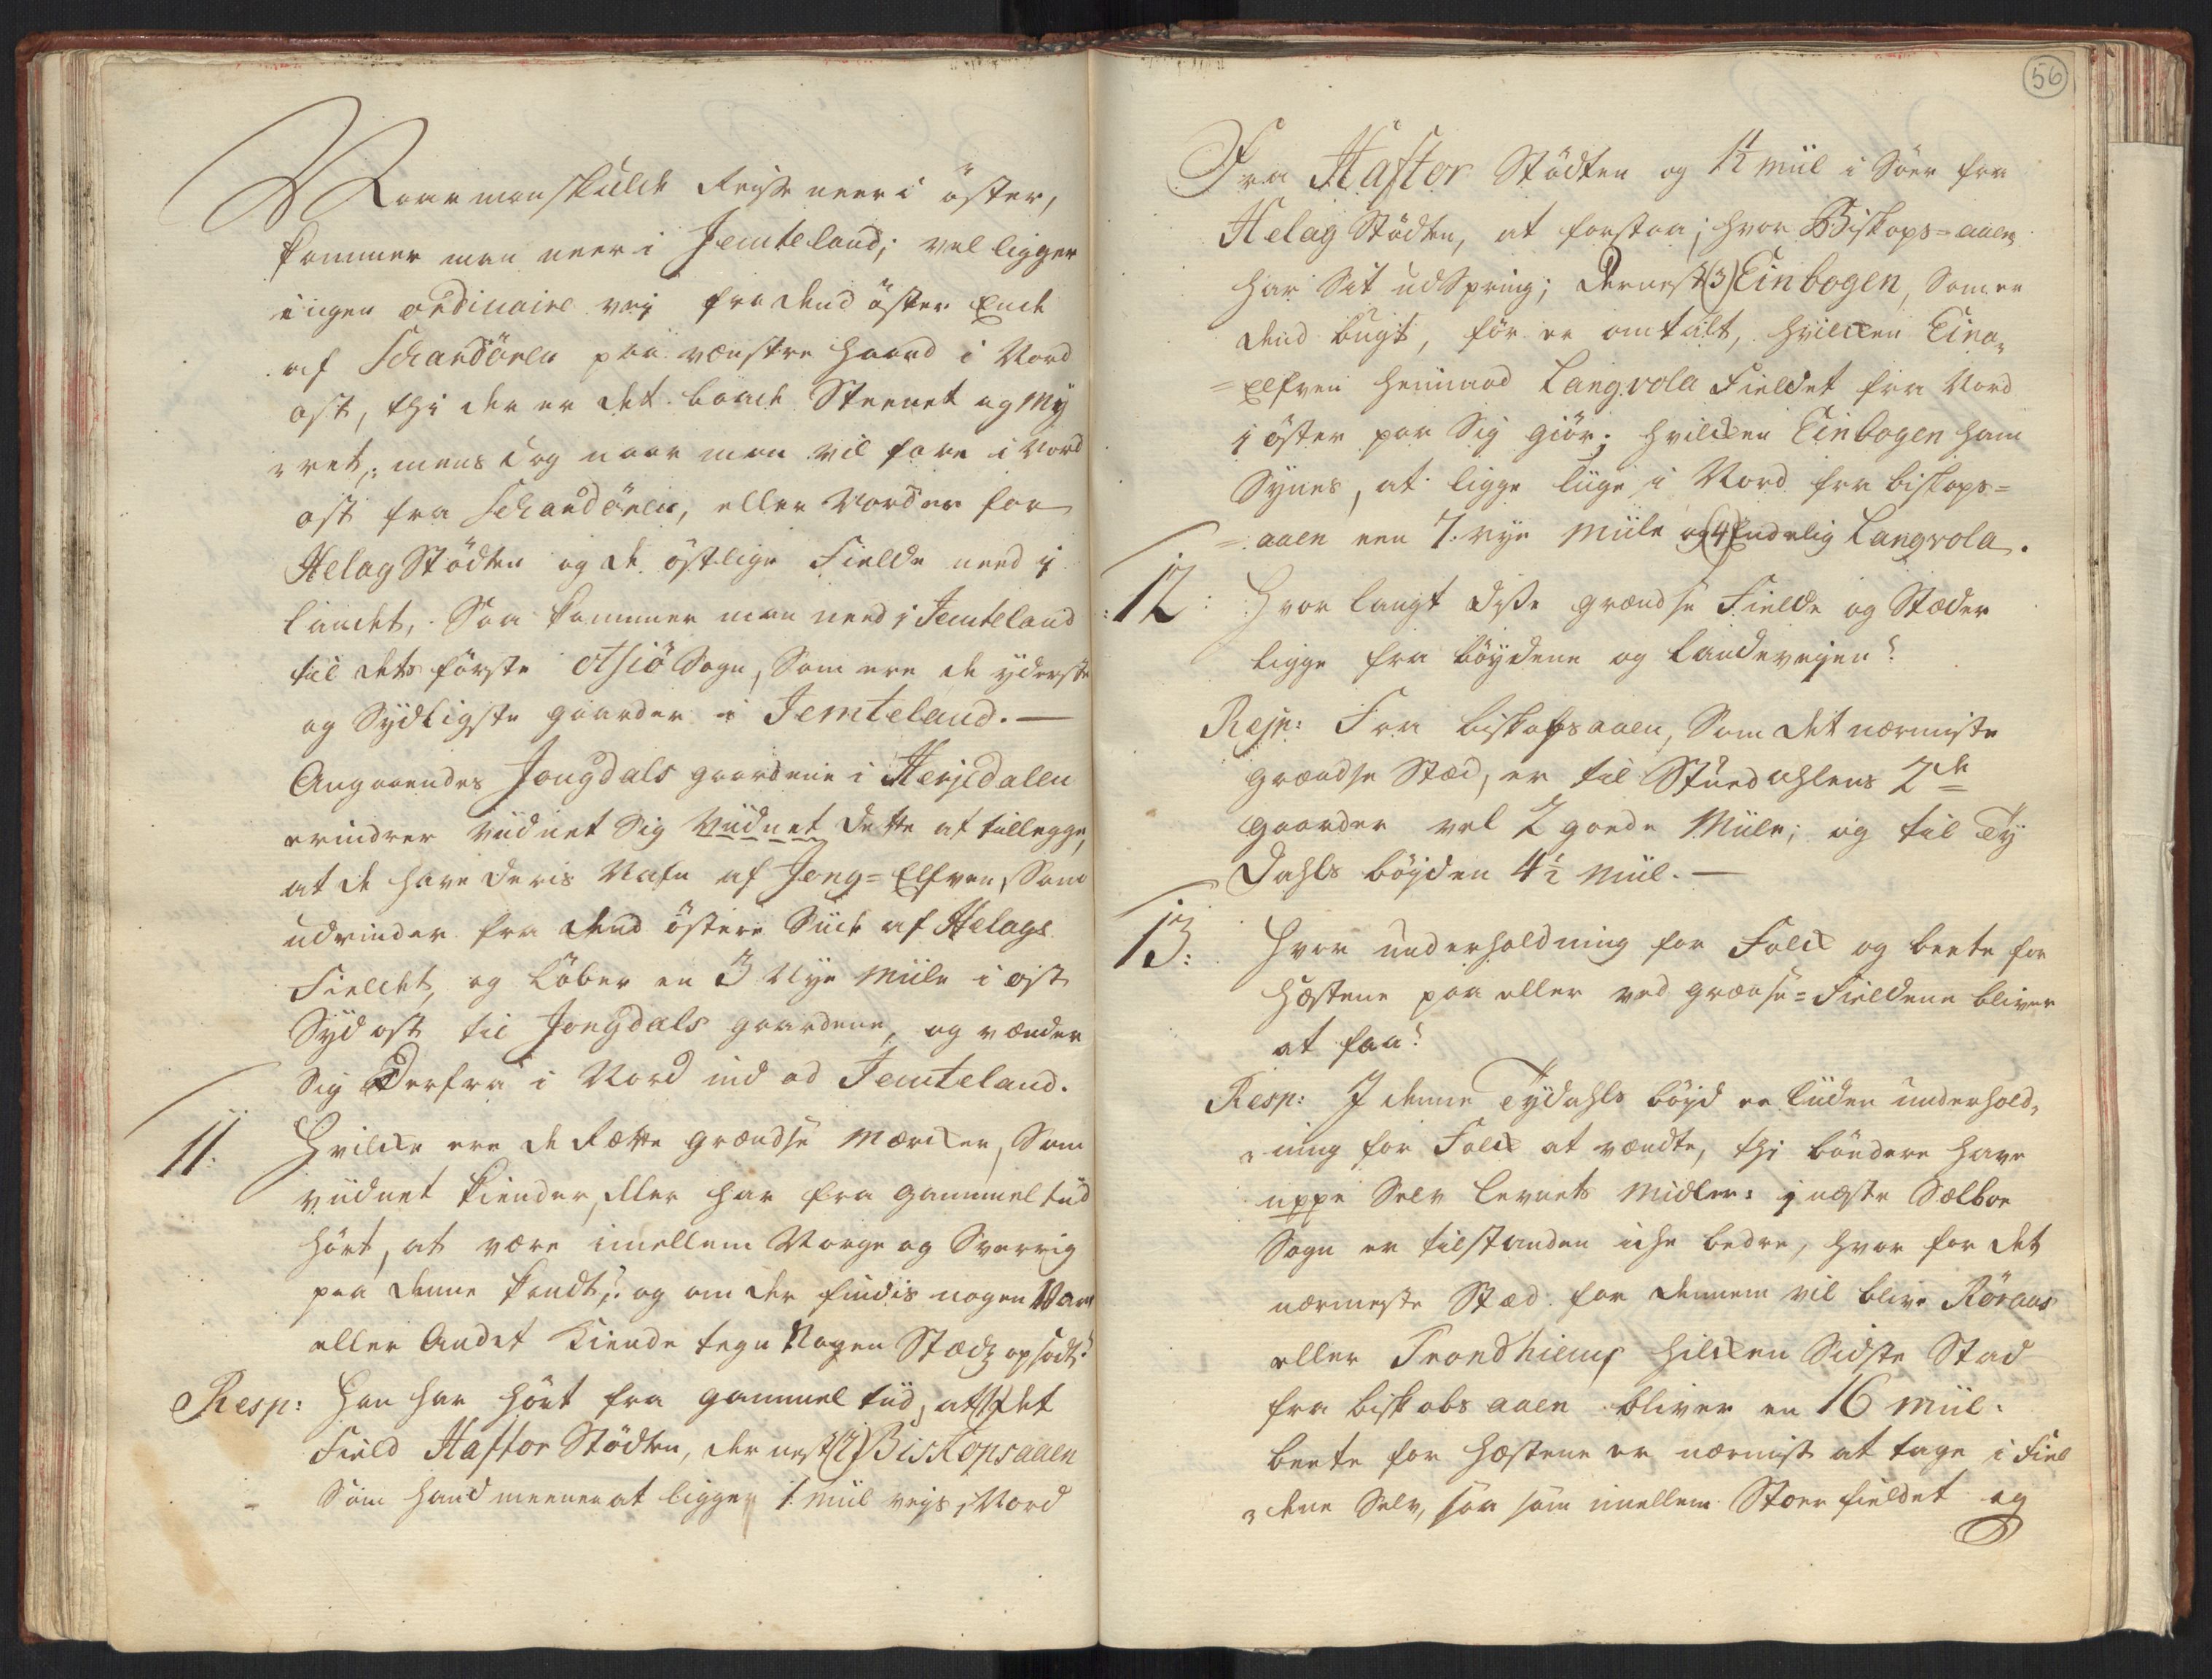 Naar man skulde Reise neer i öster,
kommer man neer i Jemteland; vel ligger
ingen ordinaire vej fra dend öster Ende
af Schardören paa venstre haand i Nord
ost, thi der er det baade Steenet og My
=ret, mens dog naar man vil fare i Nord
ost fra Schardören, eller Norden for
Helag Stödten og de östlige Fielde need i
landet, Saa kommer man need i Jemteland
til dets förste Assiö Sogn, Som ere de yderste
og Sydligste gaarder i Jemteland. —
Angaaendes Jongdals gaardene i Herjedalen
erindrer viidnet Sig Viidnet dette at tillegge,
at de have deris Nafn af Jong=Elfven, Som
udrinder fra dend östere Siide af Helags
Fieldet, og löber en 3 Nye Miile i ost
Syd ost til Jongdals gaardene, og vender
Sig Derfra i Nord ind ad Jemteland.
11. Hvilke ere de Rette grændse Mærker, Som
viidnet kiender, eller har fra gammel tiid
hört, at være imellem Norge og Sverrig
paa denne kandt, og om der findis nogen Vare
eller Andet Kiende tegn Nogen Stædz opsadt?
Resp: Han har hört fra gammel tiid, at (1) det
Field Haftor Stödten, der nest (2) Biskopsaaen
Som hand meener at ligger 1 Miil veis i Nord
56
Fra Haftor Stödten og 1½ miil i Söer fra
Helag Stödten, at forstaa; hvor Biskops=aaen
har Sit udSpring; Dernest (3) Einbogen, Som er
dend bugt, för er omtalt, hvilken Eina=
=Elfven henimod Langvola Fieldet fra Nord
i öster paa Sig giör; hvilken Einbogen ham
Synes, at ligge liige i Nord fra biskops=
=aaen een 7. nye Miile og (4) Endelig Langvola.
12: Hvor langt disse grændse Fielde og Stæder
ligge fra böydene og landeveyen?
Resp: Fra biskopsaaen, Som det nærmiste
grændse Stæd, er til Stuedahlens 2de
gaarder vel 2 goede Miile; og til Ty
Dahls böyden 4½ Miil. —
13: Hvor underholdning for Folck og beete for
Hæstene paa eller ved grændse=Fieldene bliver
at faa?
Resp: I denne Tydahls böyd er liiden underhold,
=ning for Folck at vendte, thi bönderne have
neppe Selv levnets Midler: i neste Sælboe
Sogn er tilstanden icke bedre, hvor for det
nærmeste Stæd for dennem vil blive Röraas
eller Trondhiem, hvilken Sidste Stad
fra biskobs aaen bliver en 16 Miil:
beete for Hæstene er nærmist at tage i Fiel
=dene Selv, saa som imellem Stoer fieldet og